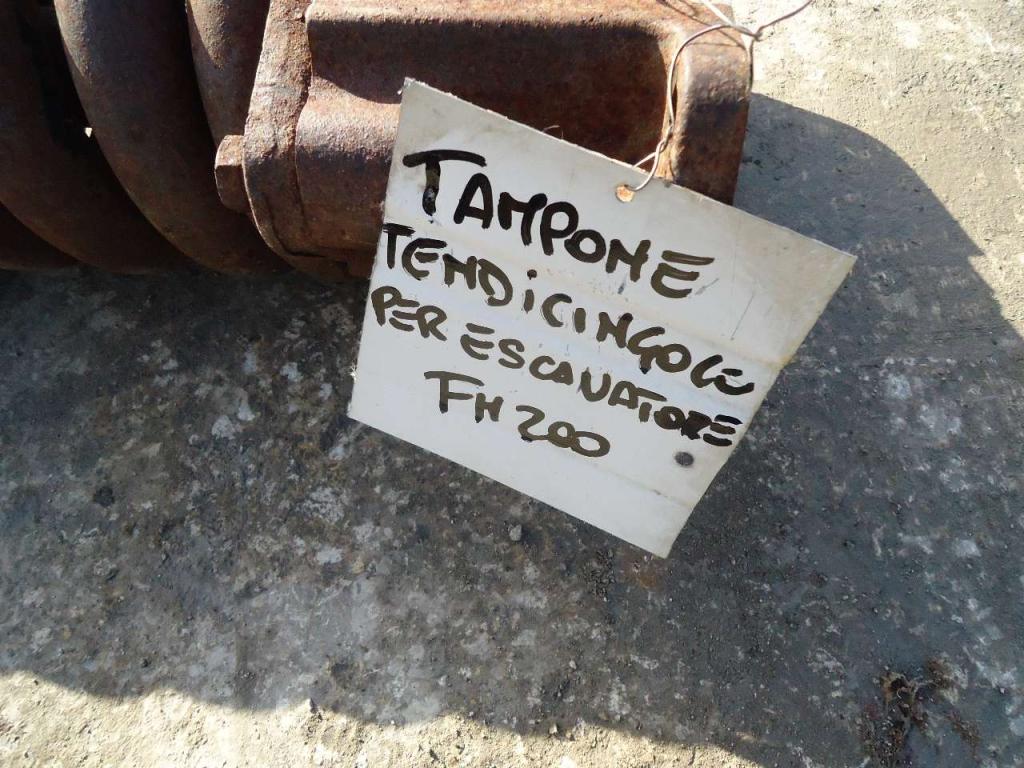 TAMPONE
TENDiCINGOLO
PER ESCAVATORE
FH 200